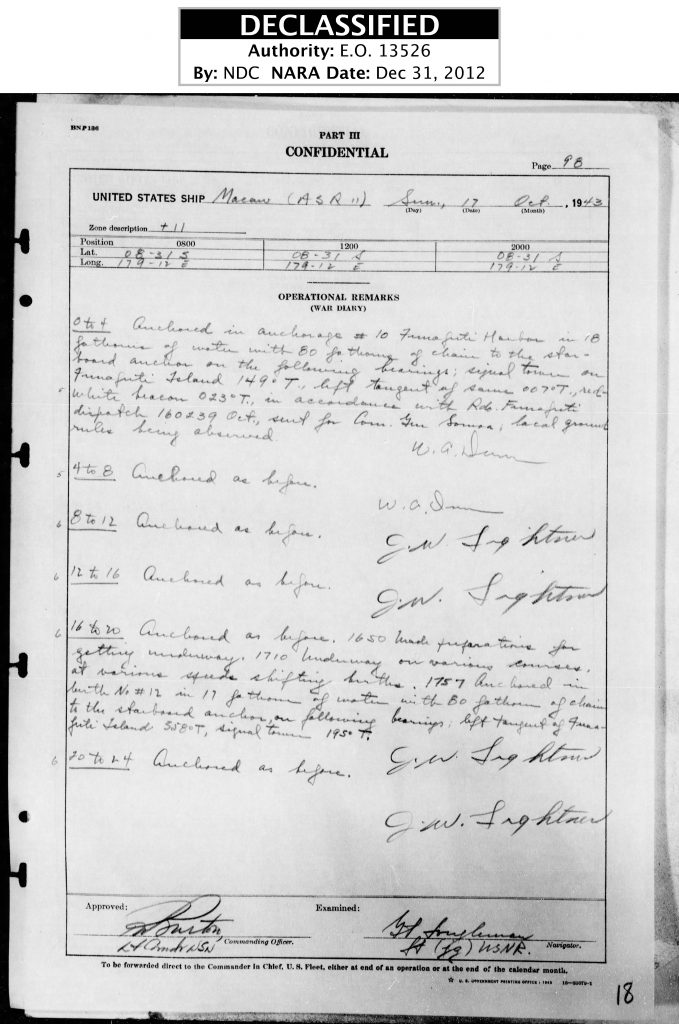 DECLASSIFIED
Authority: E.O. 13526
By: NDC NARA Date: Dec 31, 2012
BNP136
PART III
CONFIDENTIAL
Page 98
UNITED STATES SHIP Macaw (ASR 11) Sun., 17 Oct., 1943
(Day) (Date) (Month)
Zone description +11
Position 0800 1200 2000
Lat. 08-31 S 08-31 S 08-31 S
Long. 179-12 E 179-12 E 179-12 E
OPERATIONAL REMARKS
(WAR DIARY)
0 to 4 Anchored in anchorage #10 Funafuti Harbor in 18
fathoms of water with 80 fathoms of chain to the star-
board anchor on the following bearings; signal tower on
Funafuti Island 149° T., left tangent of same 007° T., red-
white beacon 023° T., in accordance with Rdo. Funafuti
dispatch 160239 Oct., sent for Com. Gen Samoa; local ground
rules being observed
W. A. Dunn
4 to 8 Anchored as before.
W. A. Dunn
8 to 12 Anchored as before.
J. W. Lightner
12 to 16 Anchored as before.
J. W. Lightner
16 to 20 Anchored as before. 1650 Made preparations for
getting underway. 1710 Underway on various courses,
at various speeds shifting berths. 1757 Anchored in
berth No #12 in 17 fathoms of water with 80 fathoms of chain
to the starboard anchor, on following bearings; left tangent of Funa-
futi Island 358° T, signal tower 195° T.
J. W. Lightner
20 to 24 Anchored as before.
J. W. Lightner
Approved: Examined:
Burton,
Lt Comdr USN Commanding Officer.
Lt (jg) USNR. Navigator.
To be forwarded direct to the Commander in Chief, U. S. Fleet, either at end of an operation or at the end of the calendar month.
U. S. GOVERNMENT PRINTING OFFICE : 1943
18